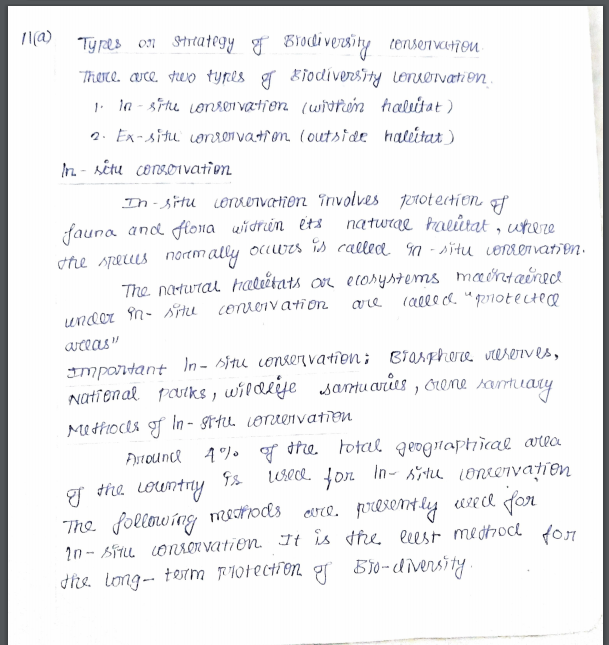 11(a) Types or strategy of Biodiversity conservation
There are two types of Biodiversity conservation.
1. In-situ conservation (within habitat)
2. Ex-situ conservation (outside habitat)
In-situ conservation
In-situ conservation involves protection of
fauna and flora within its natural habitat, where
the species normally occurs is called in-situ conservation.
The natural habitats or ecosystems maintained
under in-situ conservation are called "protected
areas"
Important In-situ conservation: Biosphere reserves,
National parks, wildlife santuaries, Gene santuary
Methods of In-situ conservation
Around 4% of the total geographical area
of the country is used for In-situ conservation
The following methods are presently used for
In-situ conservation. It is the best method for
the long-term protection of Bio-diversity.